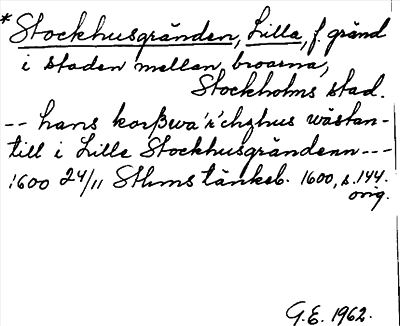 * Stockhusgränden, Lilla, f. gränd
i staden mellan broarna,
Stockholms stad.
-- hans korßwä'r'chzhus wästan-
till i Lille Stockhusgrändenn ---
1600 24/11 Sthms tänkeb. 1600, s. 144.
orig.
G.E. 1962.